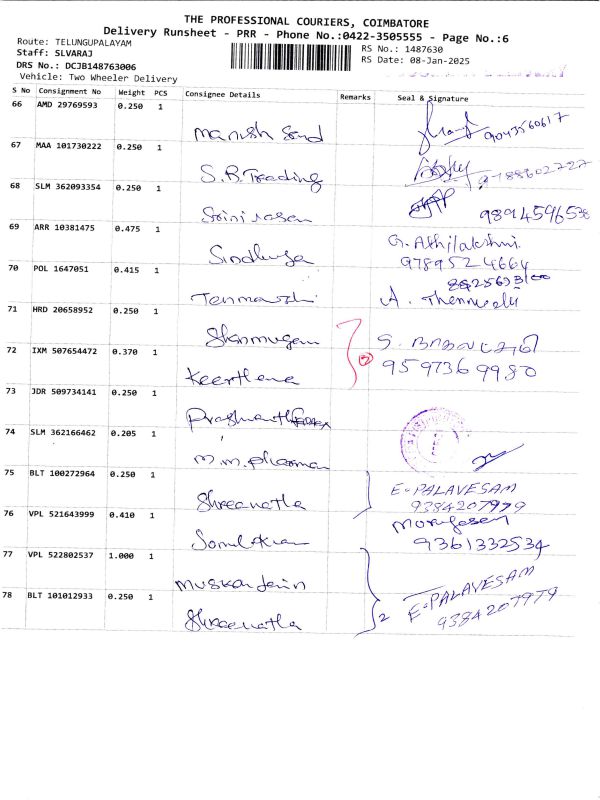 THE PROFESSIONAL COURIERS, COIMBATORE
Delivery Runsheet - PRR - Phone No.:0422-3505555 - Page No.:6
Route: TELUNGUPALAYAM
RS No.: 1487630
Staff: SLVARAJ
RS Date: 08-Jan-2025
DRS No.: DCJB148763006
Vehicle: Two Wheeler Delivery
S No Consignment No Weight PCS Consignee Details Remarks Seal & Signature
66 AMD 29769593 0.250 1
Manish Sand 9043560617
67 MAA 101730222 0.250 1
S.B. Trading
68 SLM 362093354 0.250 1
Srinivasan 9894596538
69 ARR 10381475 0.475 1
Sindhuja G. Athilakshmi
9789524664
70 POL 1647051 0.415 1
A.
71 HRD 20658952 0.250 1
Shanmugam S.
72 IXM 507654472 0.370 1
Keerthana 2 9597369980
73 JDR 509734141 0.250 1
74 SLM 362166462 0.205 1
M.M.
75 BLT 100272964 0.250 1
Shreenatha E-PALAVESAM
9384207979
76 VPL 521643999 0.410 1
Murugesan
9361332534
77 VPL 522802537 1.000 1
Muskan Jain
78 BLT 101012933 0.250 1
Shreenatha 2 E-PALAVESAM
9384207979